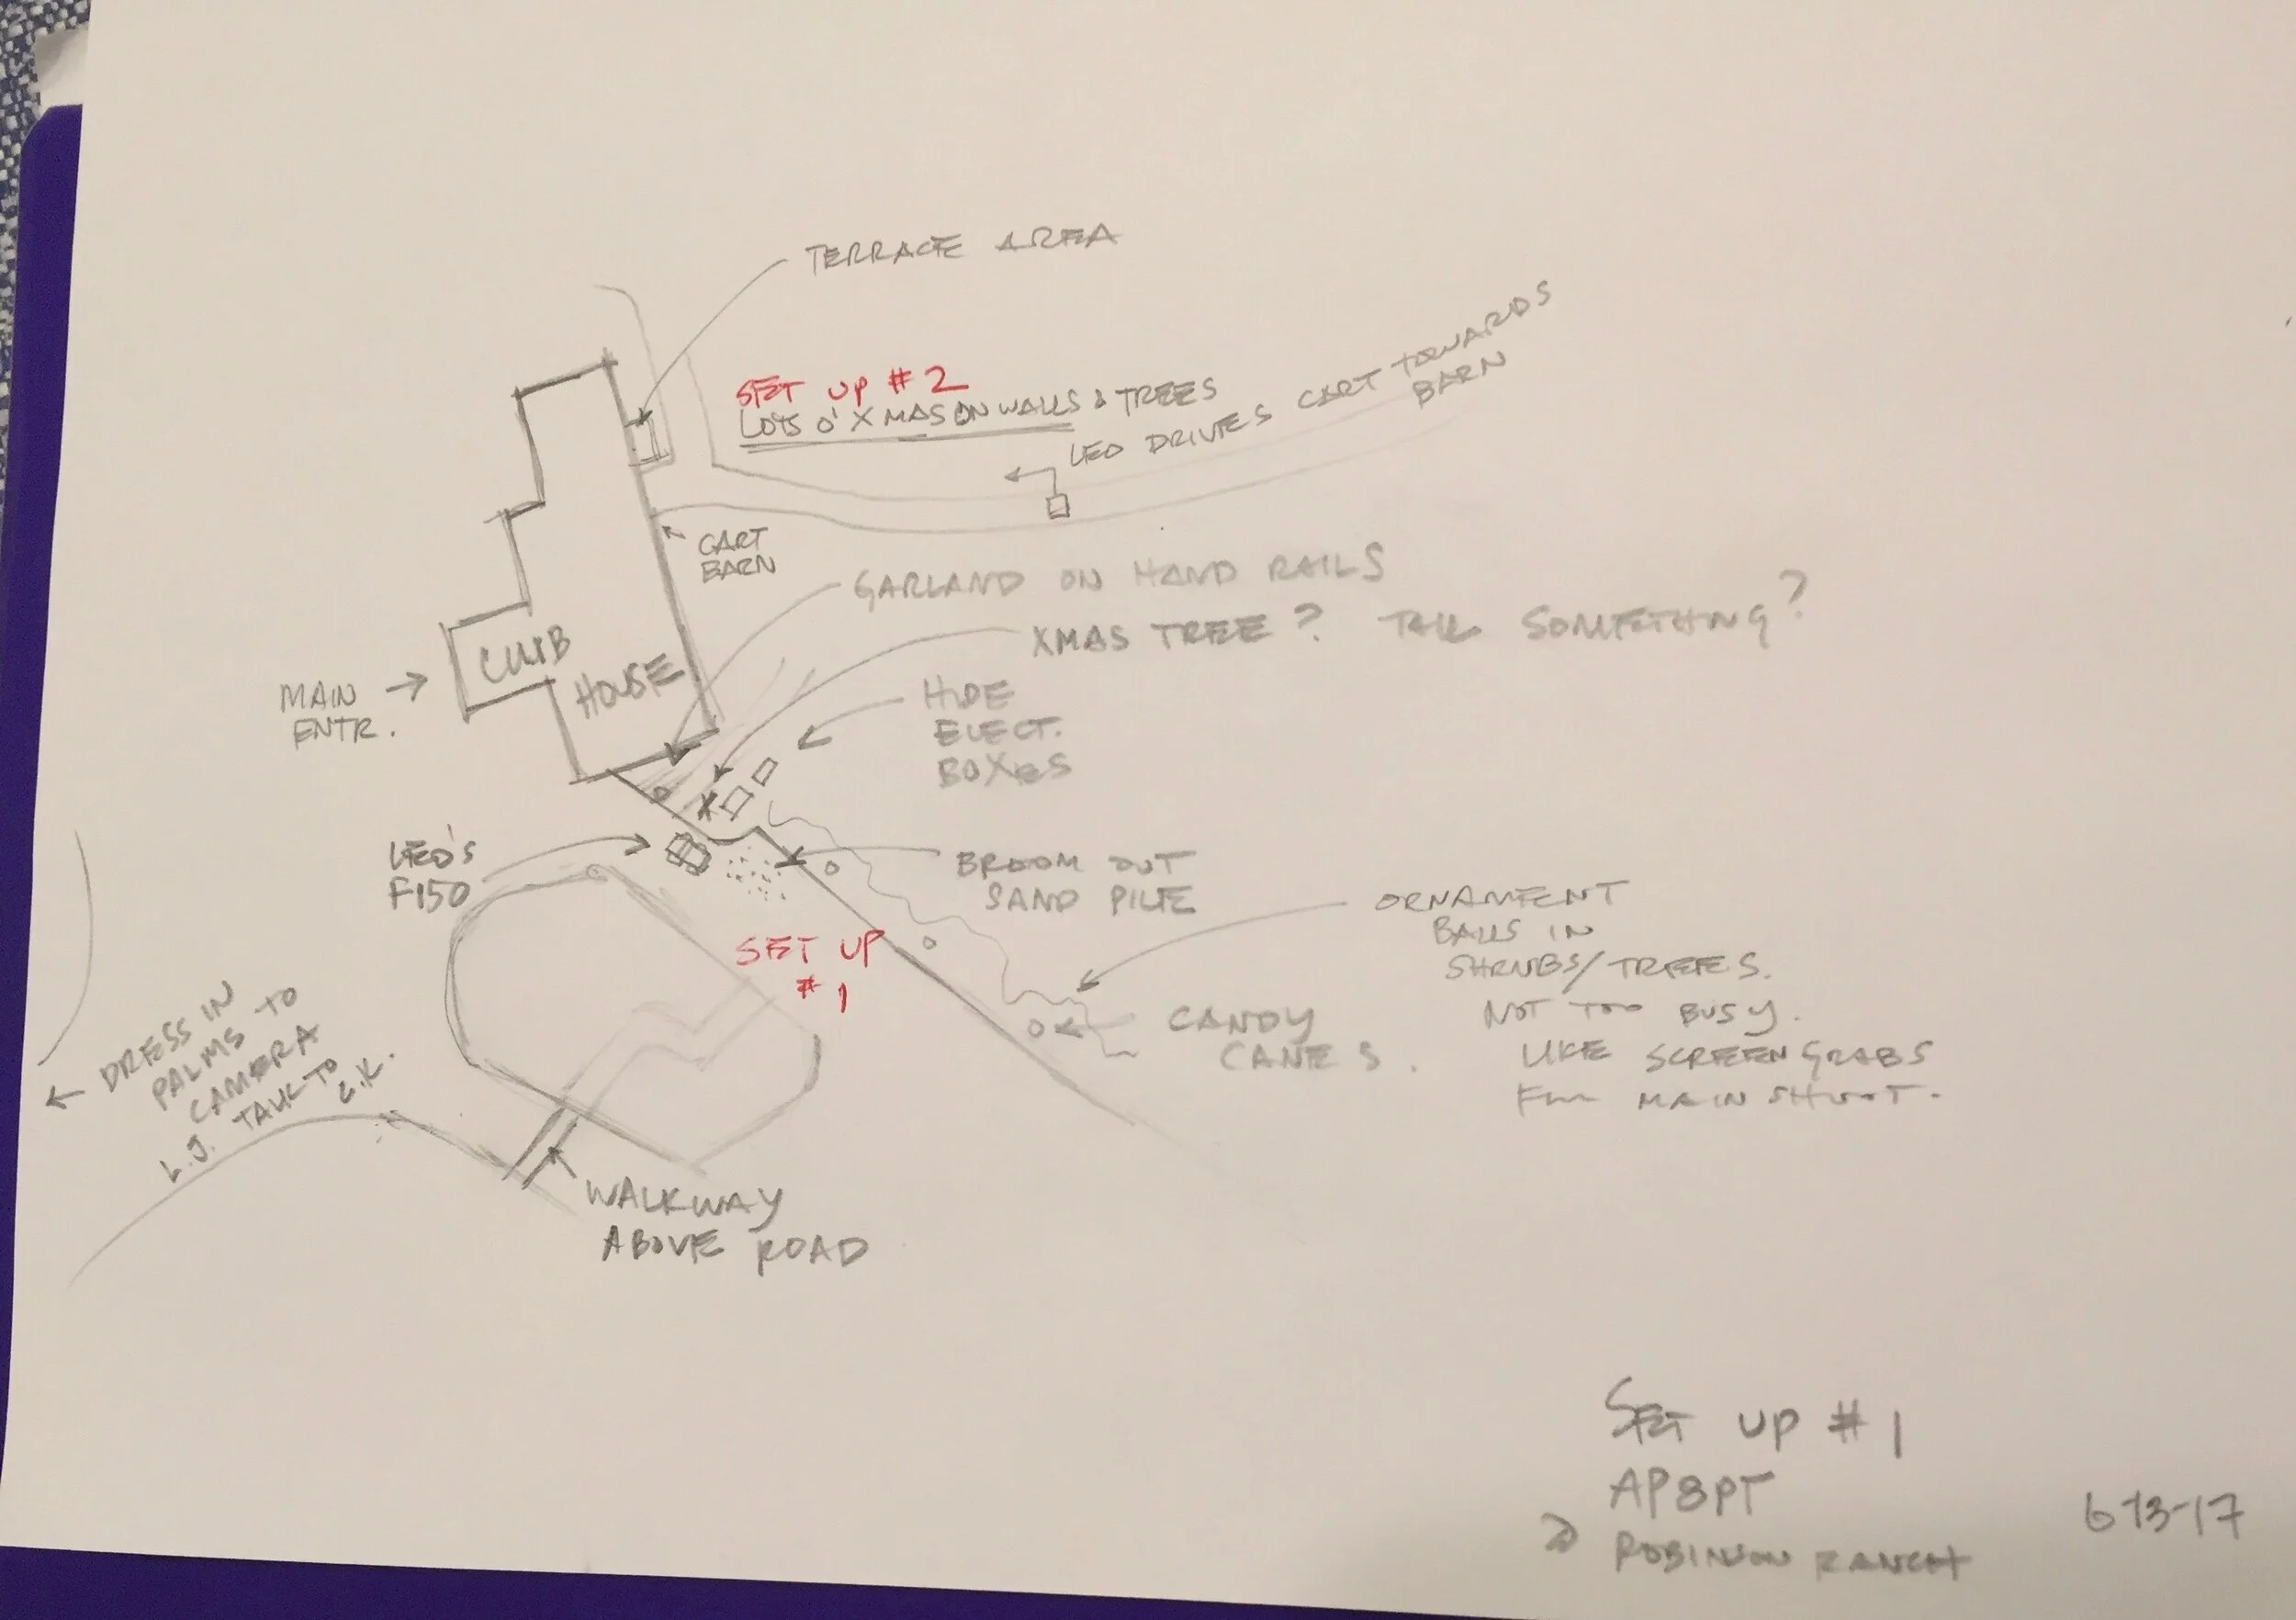 TERRACE AREA
SET UP #2
LOTS O' XMAS ON WALLS & TREES
LEO DRIVES CART TOWARDS
BARN
CART
BARN
GARLAND ON HAND RAILS
XMAS TREE? TALL SOMETHING?
CLUB
HOUSE
MAIN
ENTR.
HIDE
ELECT.
BOXES
LEO'S
F150
BROOM OUT
SAND PILE
SET UP
#1
ORNAMENT
BALLS IN
SHRUBS/TREES.
NOT TOO BUSY.
LIKE SCREENGRABS
MAIN SHOOT.
CANDY
CANES.
DRESS IN
PALMS TO
CAMERA
L.J. TALK TO
WALKWAY
ABOVE ROAD
SET UP #1
AP8PT
ROBINSON RANCH
6-13-17